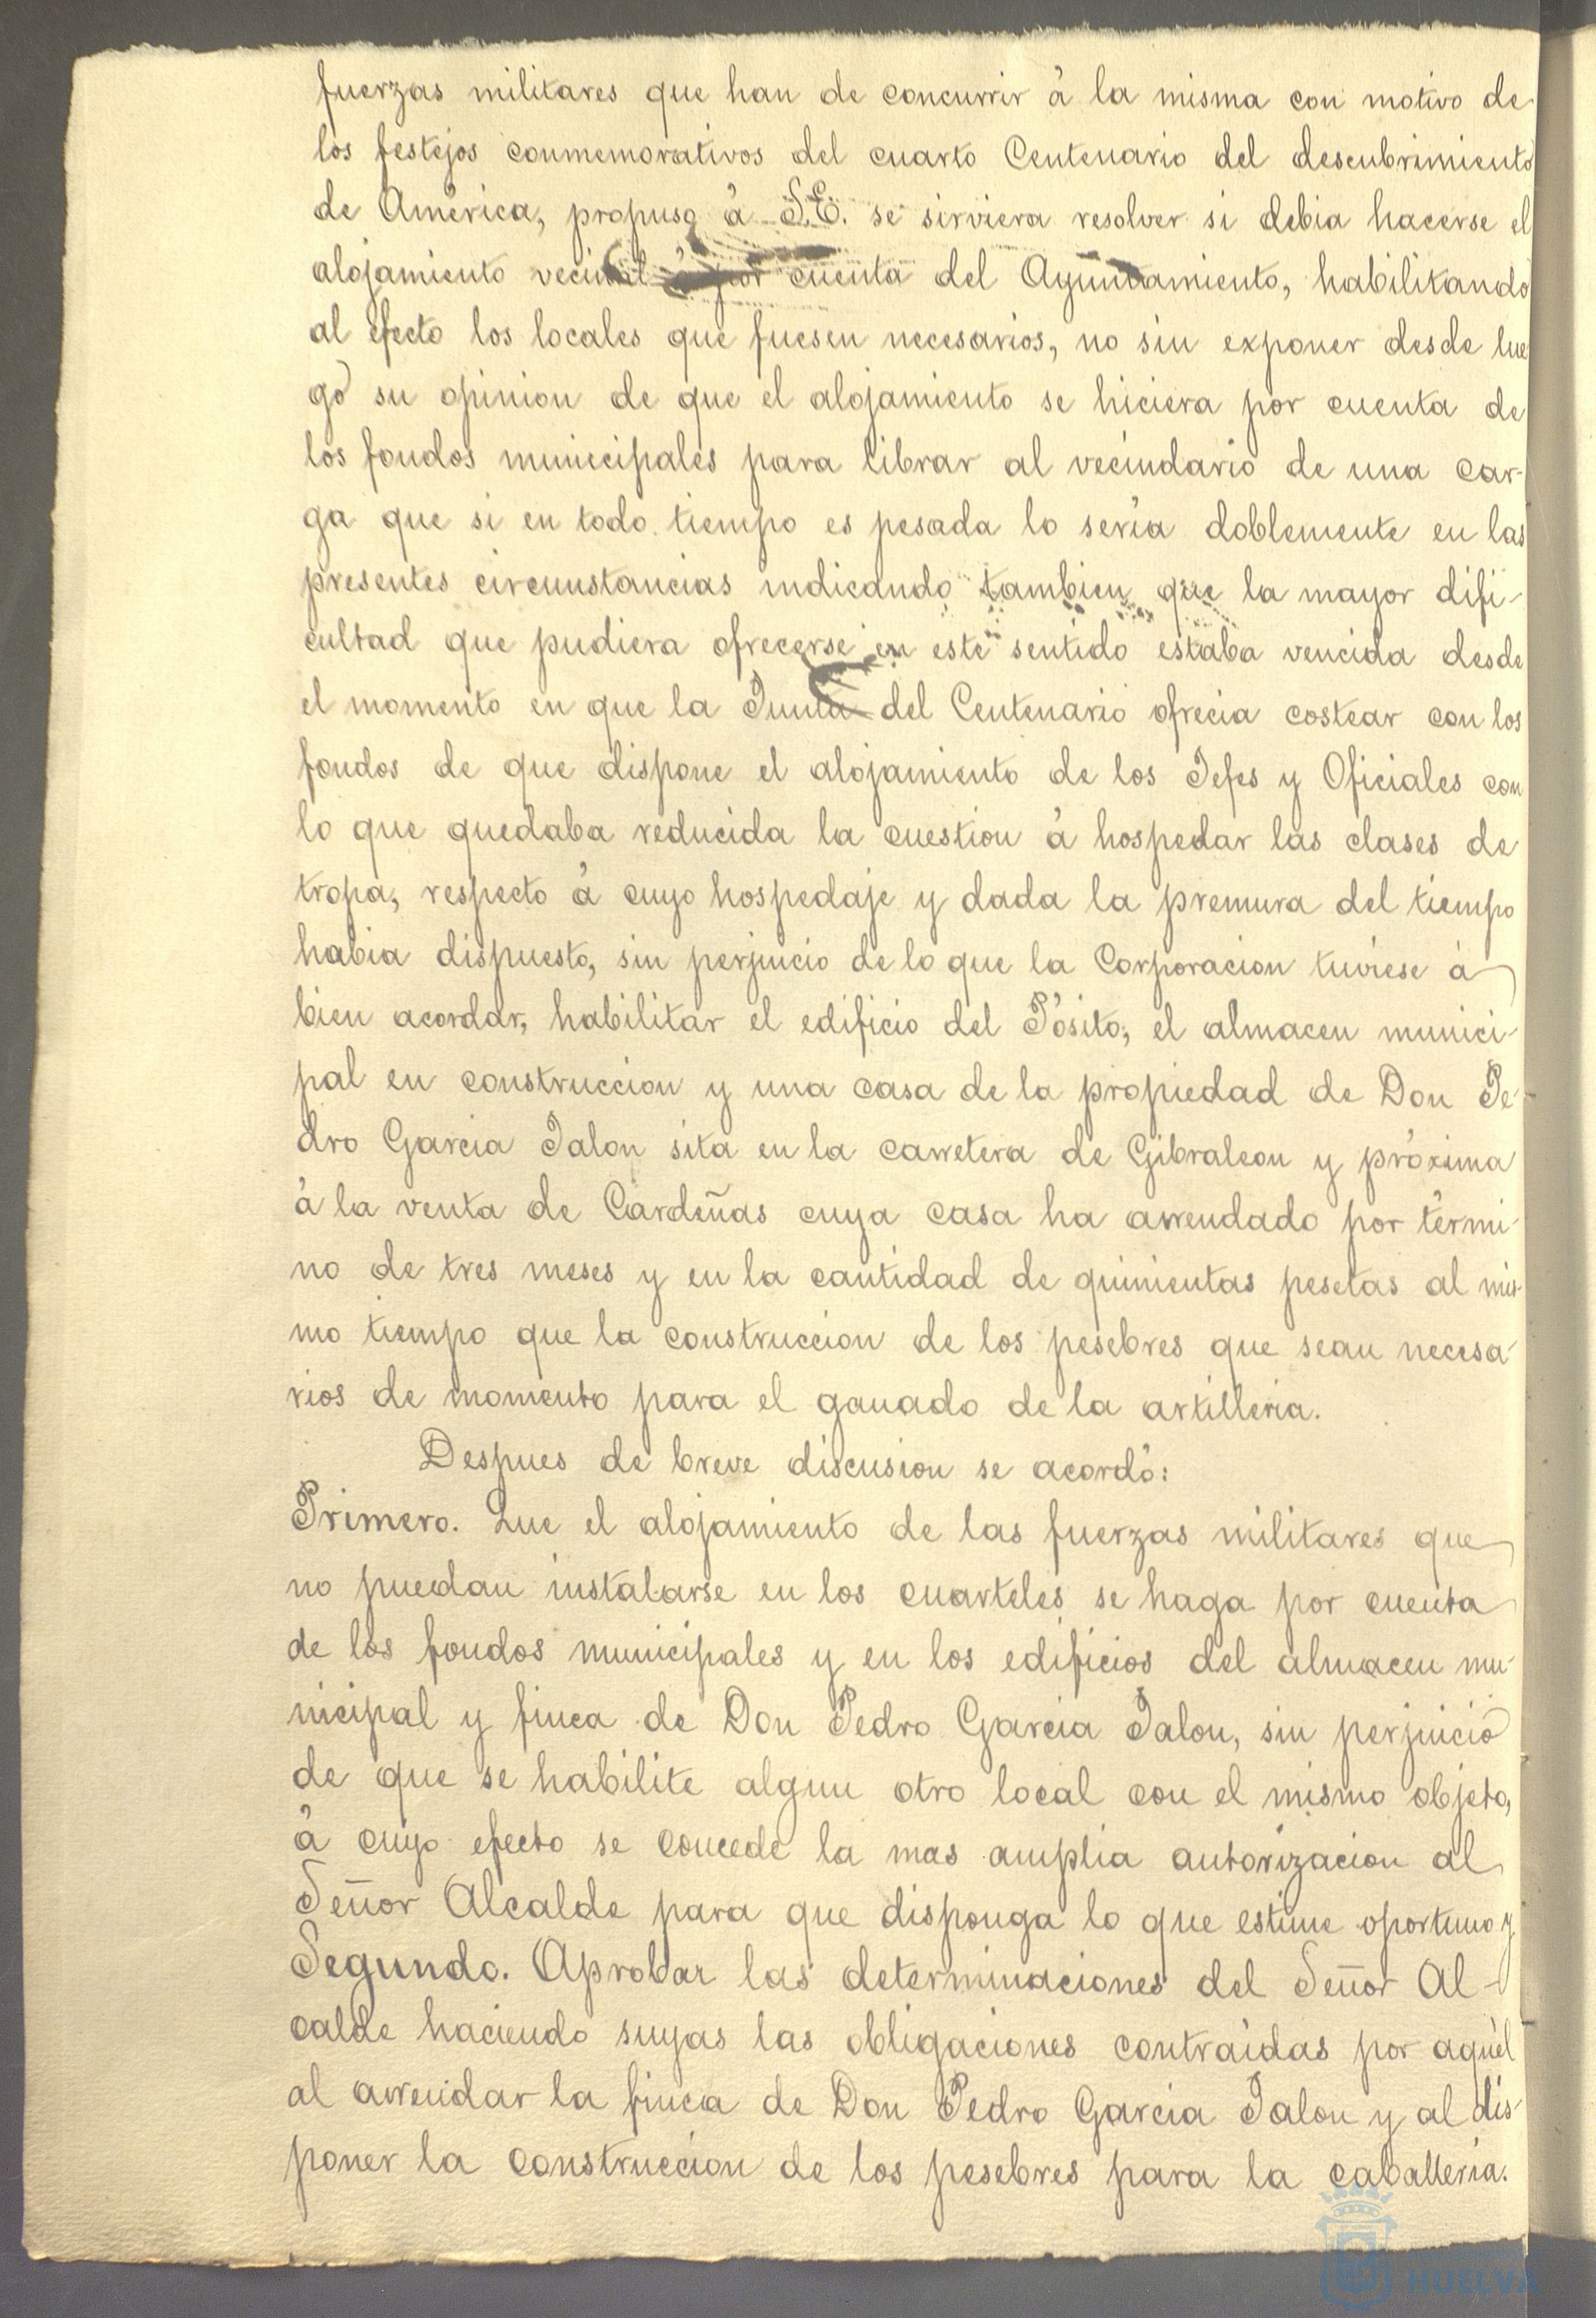 fuerzas militares que han de concurrir á la misma con motivo de
los festejos conmemorativos del cuarto Centenario del descubrimiento
de América, propuso á S.E. se sirviera resolver si debia hacerse el
alojamiento vecinal ó por cuenta del Ayuntamiento, habilitando
al efecto los locales que fuesen necesarios, no sin exponer desde lue
go su opinion de que el alojamiento se hiciera por cuenta de
los fondos municipales para librar al vecindario de una car-
ga que si en todo tiempo es pesada lo sería doblemente en las
presentes circunstancias indicando tambien que la mayor difi-
cultad que pudiera ofrecerse en este sentido estaba vencida desde
el momento en que la Junta del Centenario ofrecia costear con los
fondos de que dispone el alojamiento de los Jefes y Oficiales con
lo que quedaba reducida la cuestion á hospedar las clases de
tropa, respecto á cuyo hospedaje y dada la premura del tiempo
habia dispuesto, sin perjuicio de lo que la Corporacion tuviese á
bien acordar, habilitar el edificio del Pósito, el almacen munici-
pal en construccion y una casa de la propiedad de Don Pe-
dro Garcia Jalon sita en la carretera de Gibraleon y próxima
á la venta de Cardeñas cuya casa ha arrendado por térmi-
no de tres meses y en la cantidad de quinientas pesetas al mis-
mo tiempo que la construccion de los pesebres que sean necesa-
rios de momento para el ganado de la artilleria.
Despues de breve discusion se acordó:
Primero. Que el alojamiento de las fuerzas militares que
no puedan instalarse en los cuarteles se haga por cuenta
de los fondos municipales y en los edificios del almacen mu-
nicipal y finca de Don Pedro Garcia Jalon, sin perjuicio
de que se habilite algun otro local con el mismo objeto,
á cuyo efecto se concede la mas amplia autorizacion al
Señor Alcalde para que disponga lo que estime oportuno y
Segundo. Aprobar las determinaciones del Señor Al-
calde haciendo suyas las obligaciones contraidas por aquél
al arrendar la finca de Don Pedro Garcia Jalon y al dis-
poner la construccion de los pesebres para la caballeria.
HUELVA